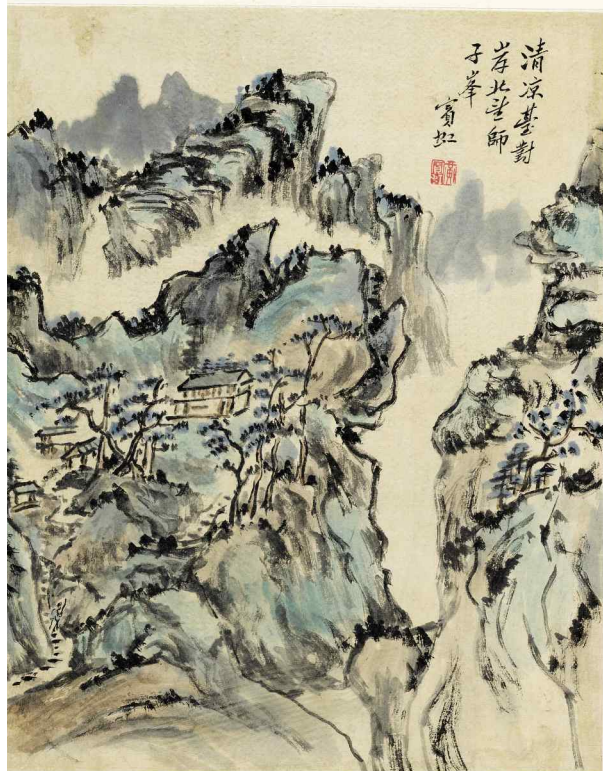 清凉臺對
岸北望師
子峯
賓虹